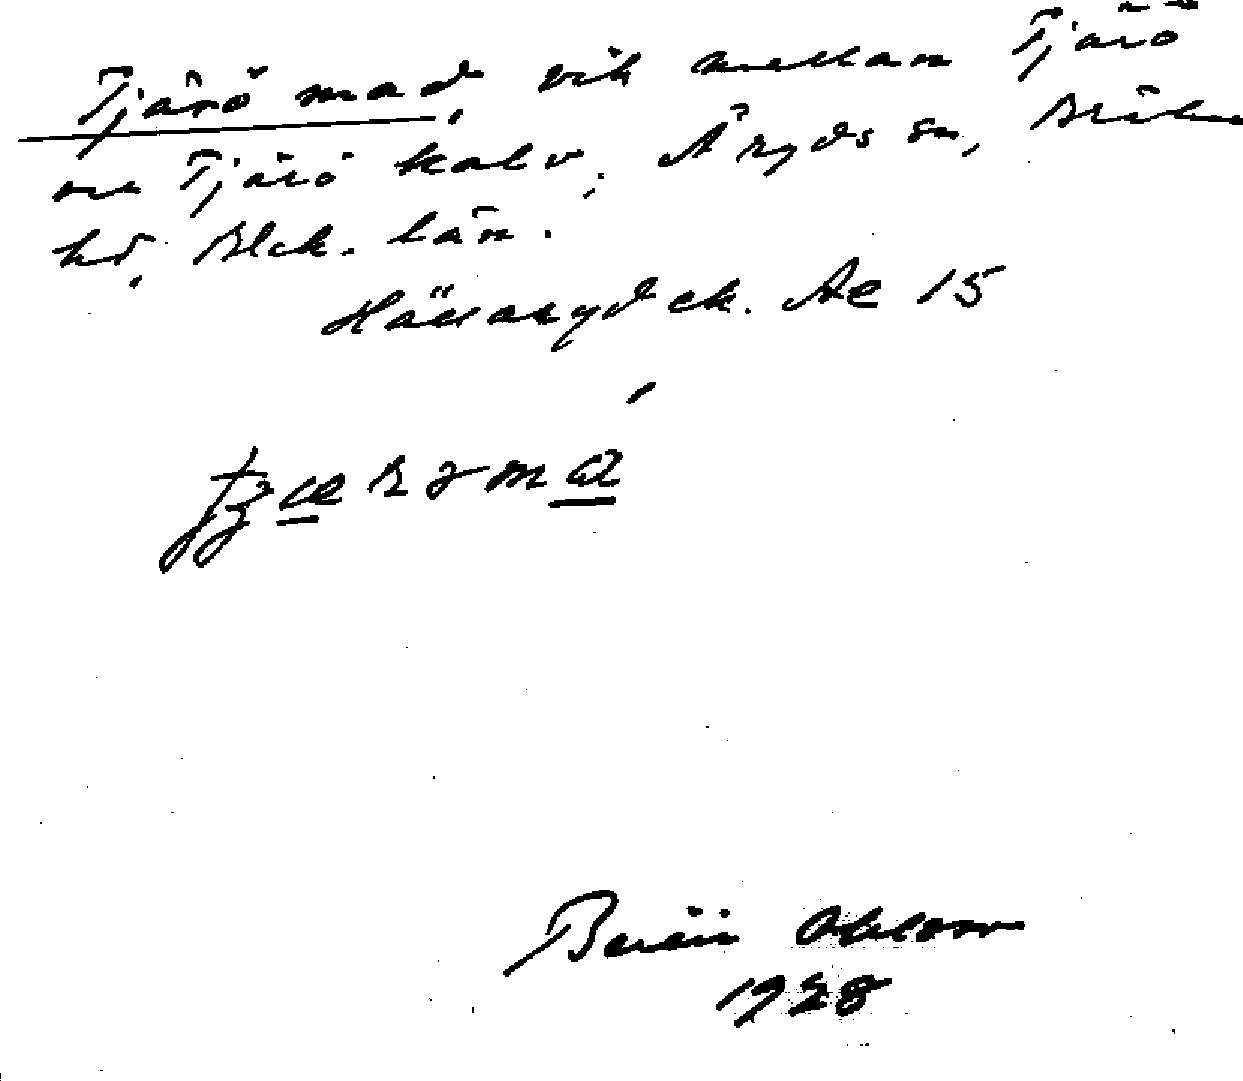 Tjärö mad, vik mellan Tjärö
Tjärö kalv, Åryds sn, Bräkne
hd, Blek. län.
Hällaryd ek. Ae 15
Beröii Ohlson
1928